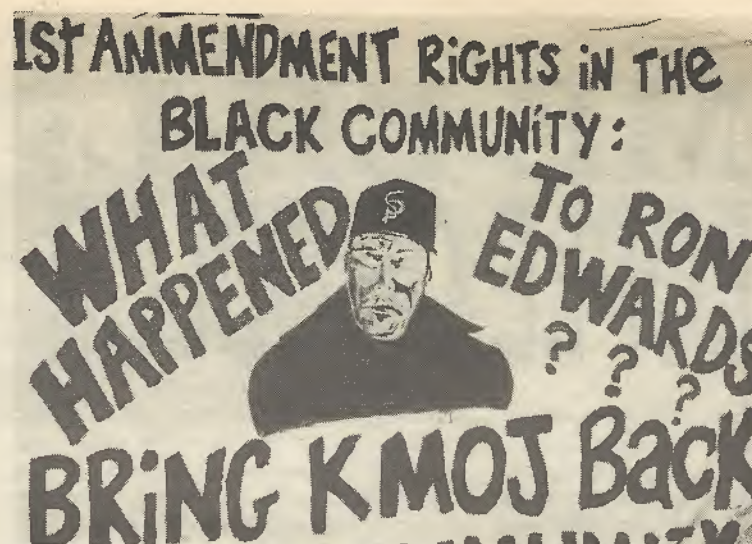 1St AMMENDMENT RiGHTS iN THe
BLACK COMMUNiTY:
WHAT
HAPPENED
TO RON
EDWARDS
? ? ?
SP
BRiNG KMOJ BacK
COMMUNITY